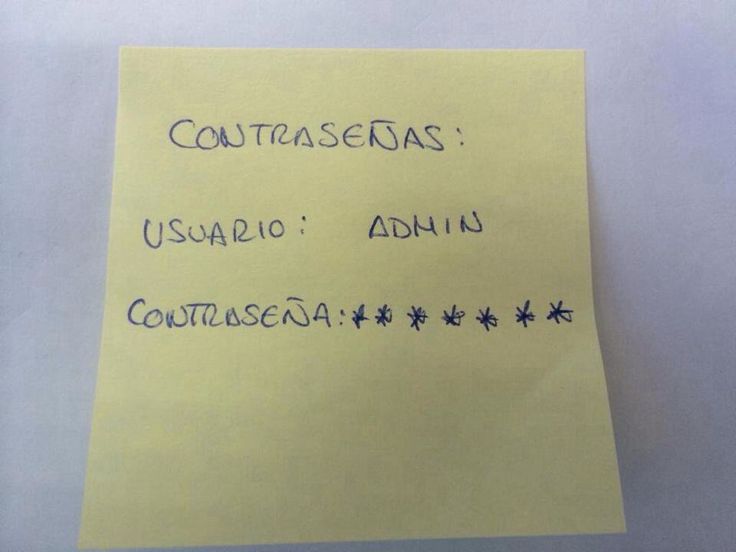 CONTRASEÑAS:
USUARIO: ADMIN
CONTRASEÑA:*******